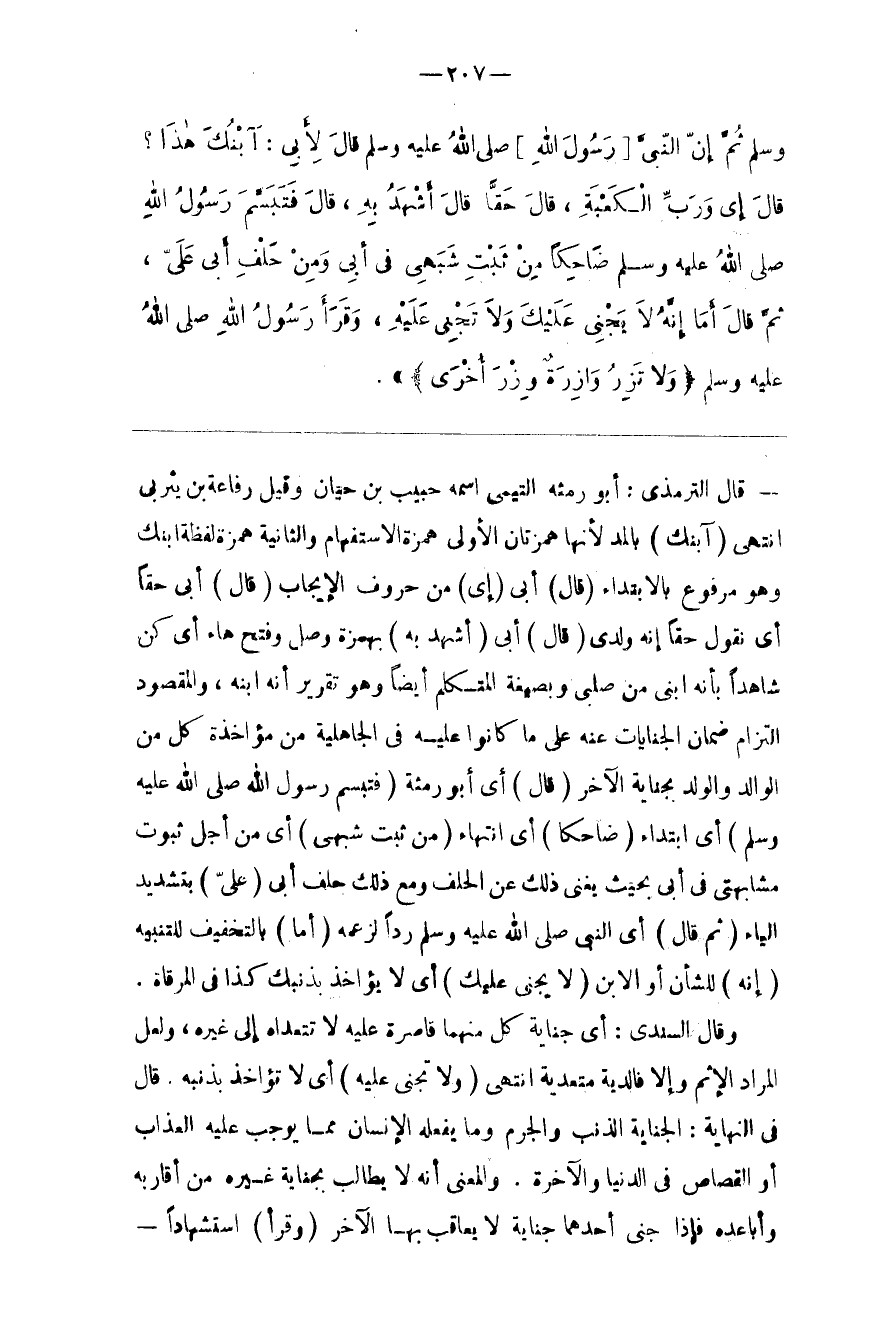 —٢٠٧—
وسلم ثُمَّ إِنّ النّبىَّ [ رَسُولَ اللهِ ] صلى اللهُ عليه وسلم قالَ لِأَبِى : آبْنُكَ هٰذَا ؟
قالَ إِى وَرَبِّ الْكَعْبَةِ ، قالَ حَقًّا قالَ أَشْهَدُ بِهِ ، قالَ فَتَبَسَّمَ رَسُولُ اللهِ
صلى اللهُ عليه وسلم ضَاحِكاً مِنْ ثَبْتِ شَبَهِى فى أَبِى وَمِنْ حَلْفِ أَبى عَلَىّ ،
ثمّ قالَ أَمَا إِنَّهُ لاَ يَجْنِى عَلَيْكَ وَلاَ تَجْنِى عَلَيْهِ ، وَقَرَأَ رَسُولُ اللهِ صلى اللهُ
عليه وسلم ﴿ وَلا تَزِرُ وَازِرَةٌ وِزْرَ أُخْرَى ﴾ » .
— قال الترمذى : أبو رمثه التيمى اسمه حبيب بن حيان وقيل رفاعة بن يثربى
انتهى ( آبنك ) بالمد لأنها همزتان الأولى همزة الاستفهام والثانية همزة لفظة ابنك
وهو مرفوع بالابتداء (قال) أبى (إى) من حروف الإيجاب ( قال ) أبى حقاً
أى نقول حقاً إنه ولدى ( قال ) أبى ( أشهد به ) بهمزة وصل وفتح هاء أى كن
شاهداً بأنه ابنى من صلبى وبصيغة المتكلم أيضاً وهو تقرير أنه ابنه ، والمقصود
التزام ضمان الجنايات عنه على ما كانوا عليه فى الجاهلية من مؤاخذة كل من
الوالد والولد بجناية الآخر ( قال ) أى أبو رمثة ( فتبسم رسول الله صلى الله عليه
وسلم ) أى ابتداء ( ضاحكا ) أى انتهاء ( من ثبت شبهى ) أى من أجل ثبوت
مشابهتى فى أبى بحيث يغنى ذلك عن الحلف ومع ذلك حلف أبى ( علىّ ) بتشديد
الياء ( ثم قال ) أى النبى صلى الله عليه وسلم رداً لزعمه ( أما ) بالتخفيف للتنبيه
( إنه ) للشأن أو الابن ( لا يجنى عليك ) أى لا يؤاخذ بذنبك كذا فى المرقاة .
وقال السندى : أى جناية كل منهما قاصرة عليه لا تتعداه إلى غيره ، ولعل
المراد الإثم وإلا فالدية متعدية انتهى ( ولا تجنى عليه ) أى لا تؤاخذ بذنبه . قال
فى النهاية : الجناية الذنب والجرم وما يفعله الإنسان مما يوجب عليه العذاب
أو القصاص فى الدنيا والآخرة . والمعنى أنه لا يطالب بجناية غيره من أقاربه
وأباعده فإذا جنى أحدهما جناية لا يعاقب بها الآخر (وقرأ) استشهاداً —